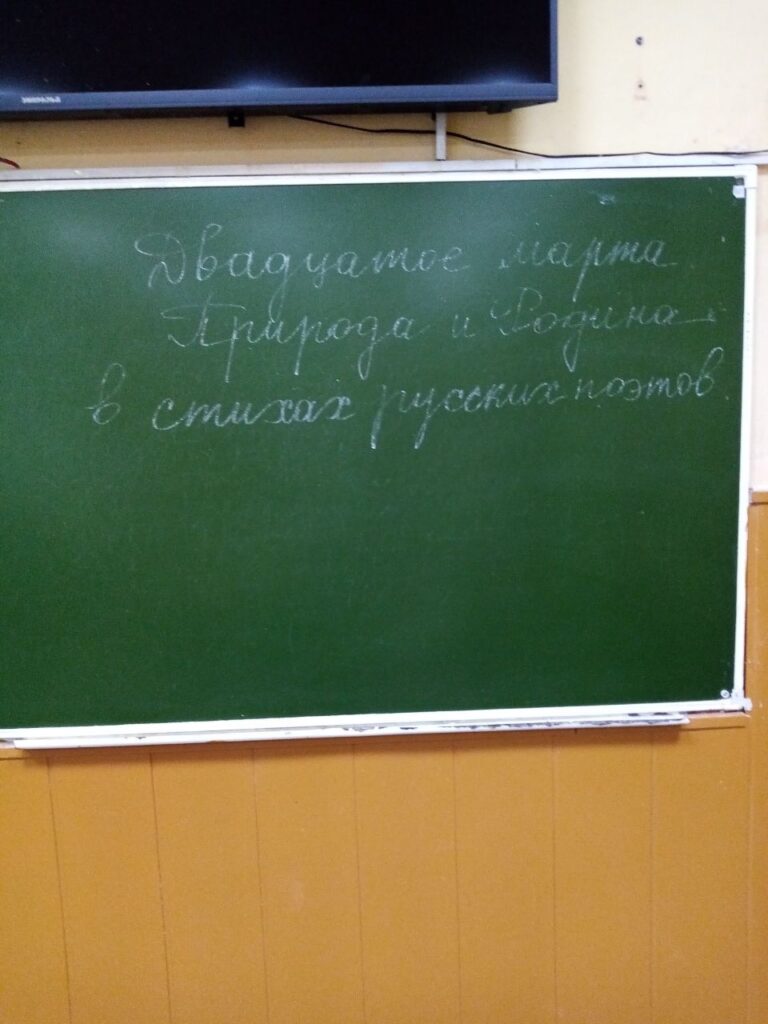 Двадцатое марта
Природа и Родина
в стихах русских поэтов